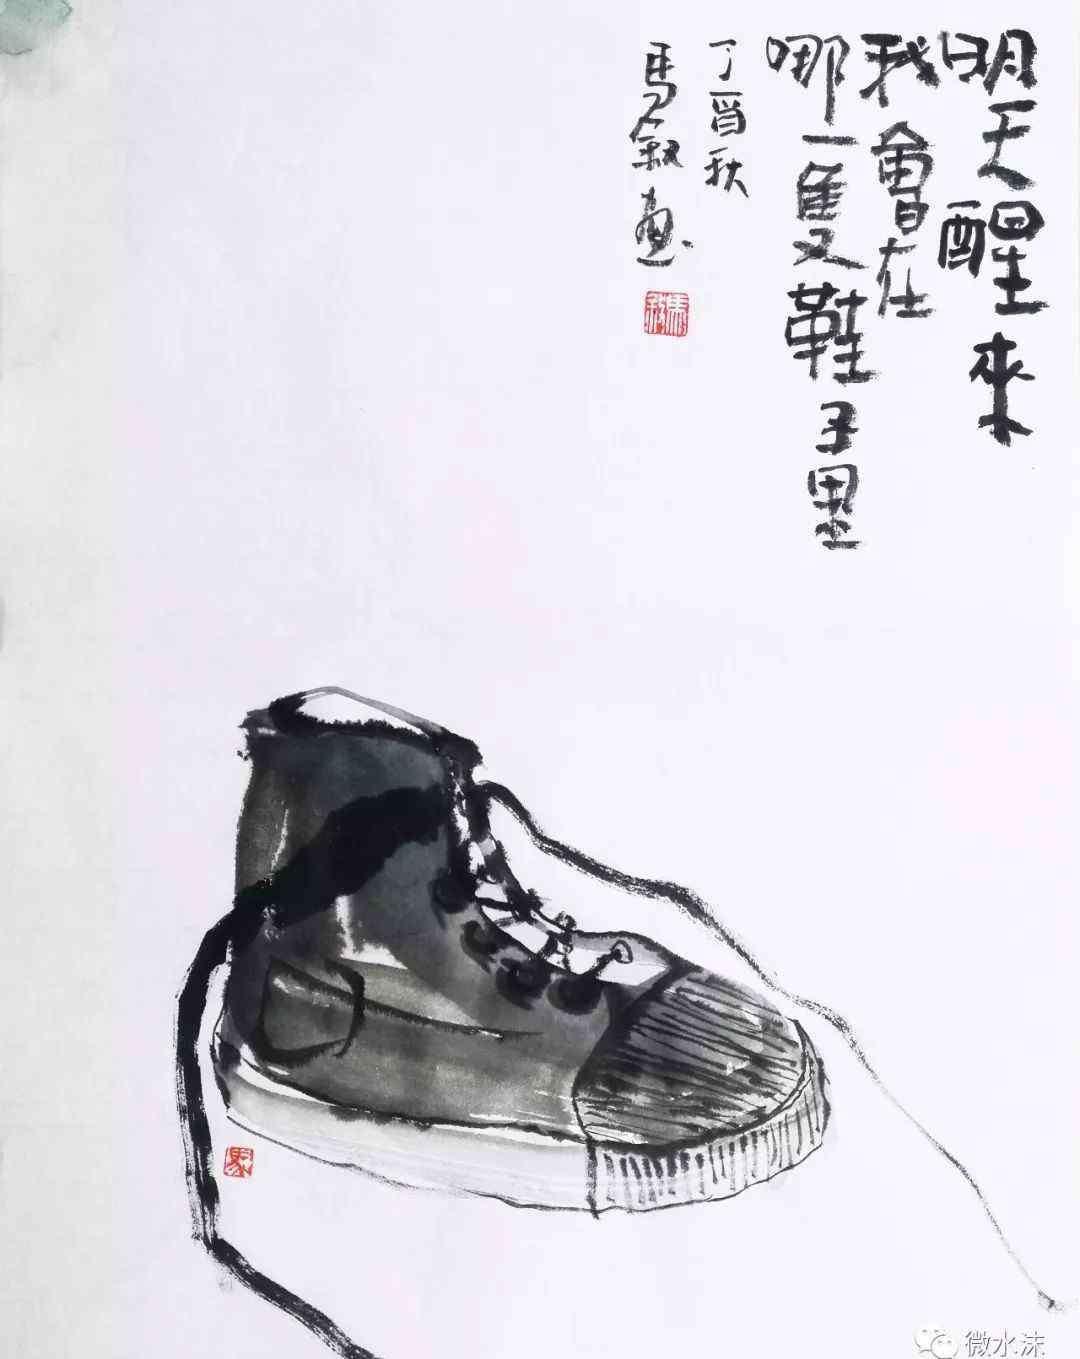 明天醒來
我會在
哪一隻鞋子里
丁酉秋
馬敘畫
馬敘
微水沫